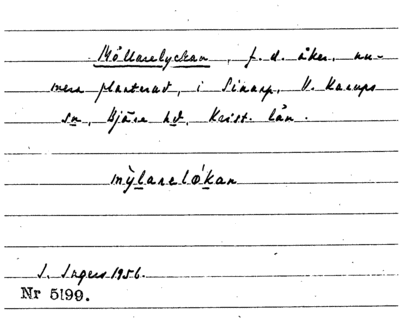 Möllarelyckan, f.d. åker, nu-
mera planterad, i Sinarp, V. Karups
sn, Bjäre hd, Krist. län.
mỳlarelókan
S. Ingers 1956.
Nr 5199.